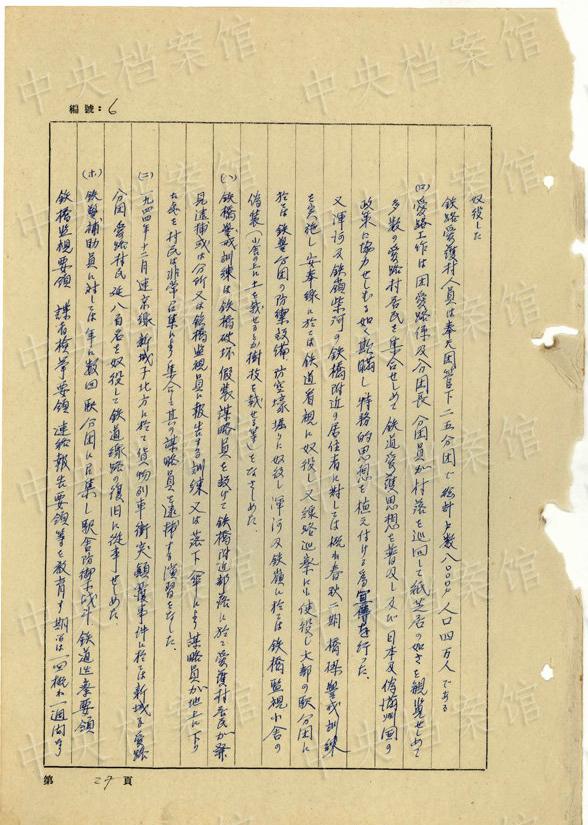 編號：6
奴役した
鉄路愛護村人員は奉天団管下二五分団で総計戸数八〇〇〇人口四万人である
(ロ) 愛路工作は団愛路係及分団長 分団員が村落を巡回して紙芝居の如きを観覧せしめて
多数の愛路村居民を集合せしめて鉄道愛護思想を普及し及び日本及偽満洲国の
政策に協力せしむる如く欺瞞し特務的思想を植え付ける為宣傳を行った.
又渾河及鉄嶺柴河の鉄橋附近の居住者に対しては概ね春秋二期 橋梁警戒訓練
を実施し安奉線に於ては鉄道看視に奴役し又線路巡察にも使役し大部の駅分団に
於ては鉄警分団の防禦設備 防空壕堀りに奴役し渾河及鉄嶺に於ては鉄橋監視小舎の
偽装(小舎の上に土を載せるとか樹枝を載せる等)をなさしめた.
(ハ) 鉄橋警戒訓練は鉄橋破坏仮装謀略員を設けて鉄橋附近部落に於て愛護村居民が発
見逮捕或は分所又は鉄橋監視員に報告する訓練 又は落下傘により謀略員が地上に下り
たるを村民の非常召集により集合して其の謀略員を逮捕する演習をなした.
(ニ) 一九四四年十二月連京線新城子北方に於て貨物列車衝突顚覆事件に於ては新城子愛路
分団愛路村民延八百名を奴役して鉄道線路の復旧に従事せしめた
(ホ) 鉄警補助員に対しては年に数回駅分団に召集し駅舎防衛战斗 鉄道巡察要領
鉄橋監視要領 謀者検挙要領 連絡報告要領等を教育す期間は一回概ね一週間なり
第 29 頁
中央档案馆